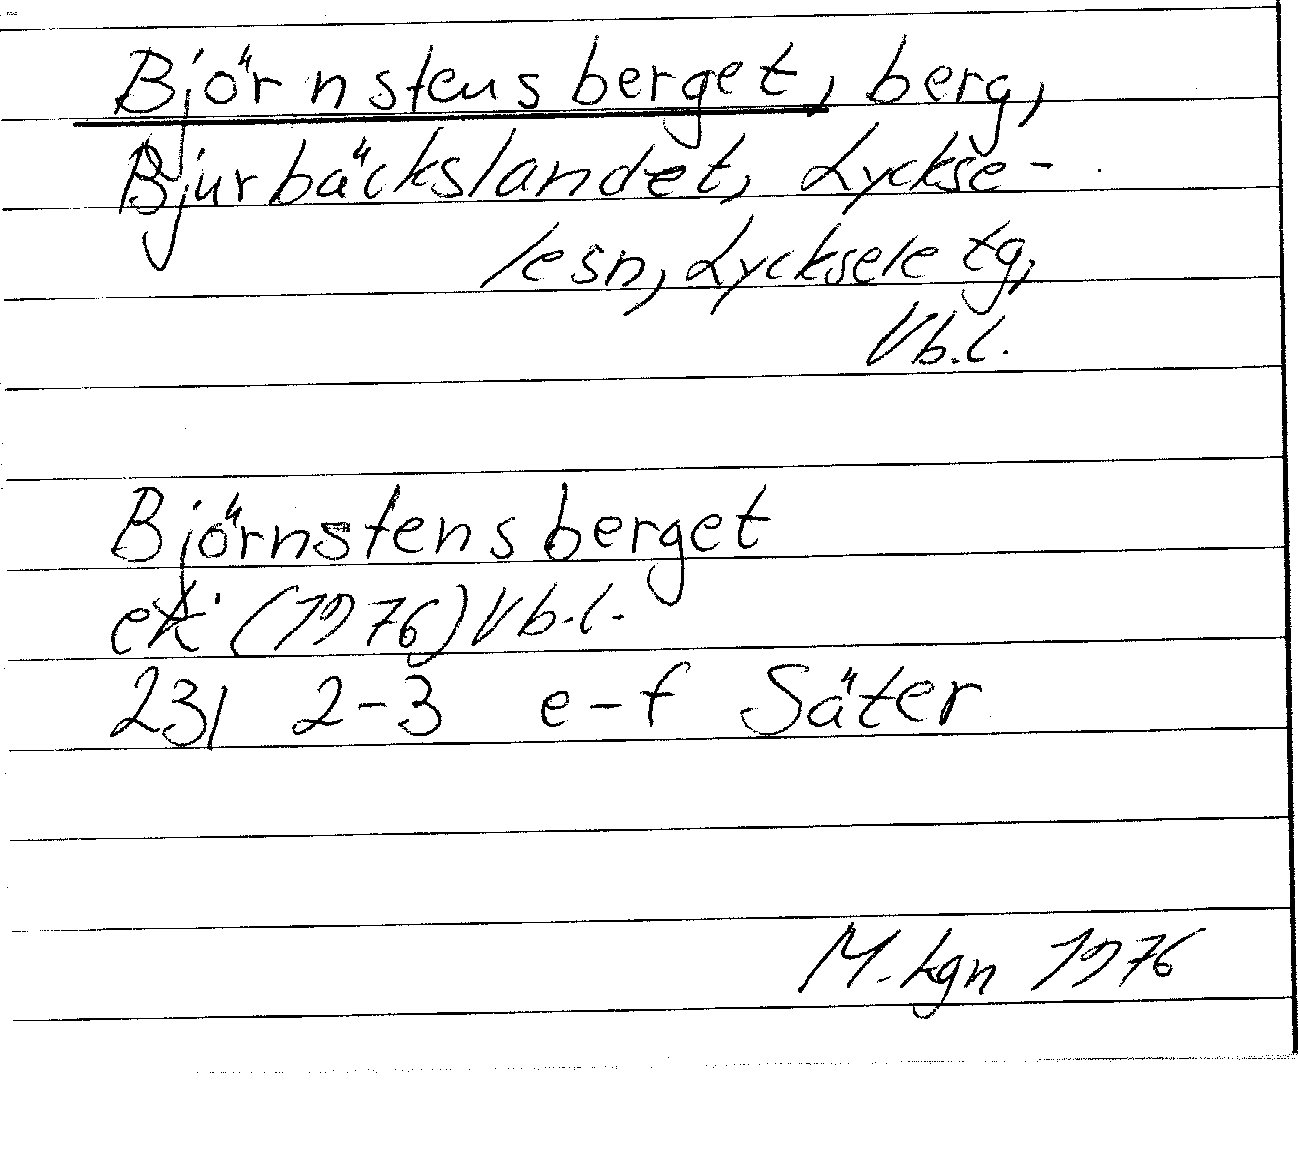 Björnstensberget, berg,
Bjurbäckslandet, Lyckse-
lesn, Lycksele tg,
Vb.l.
Björnstensberget
ek (1976) Vb.l.
231 2-3 e-f Säter
M.hgn 1976